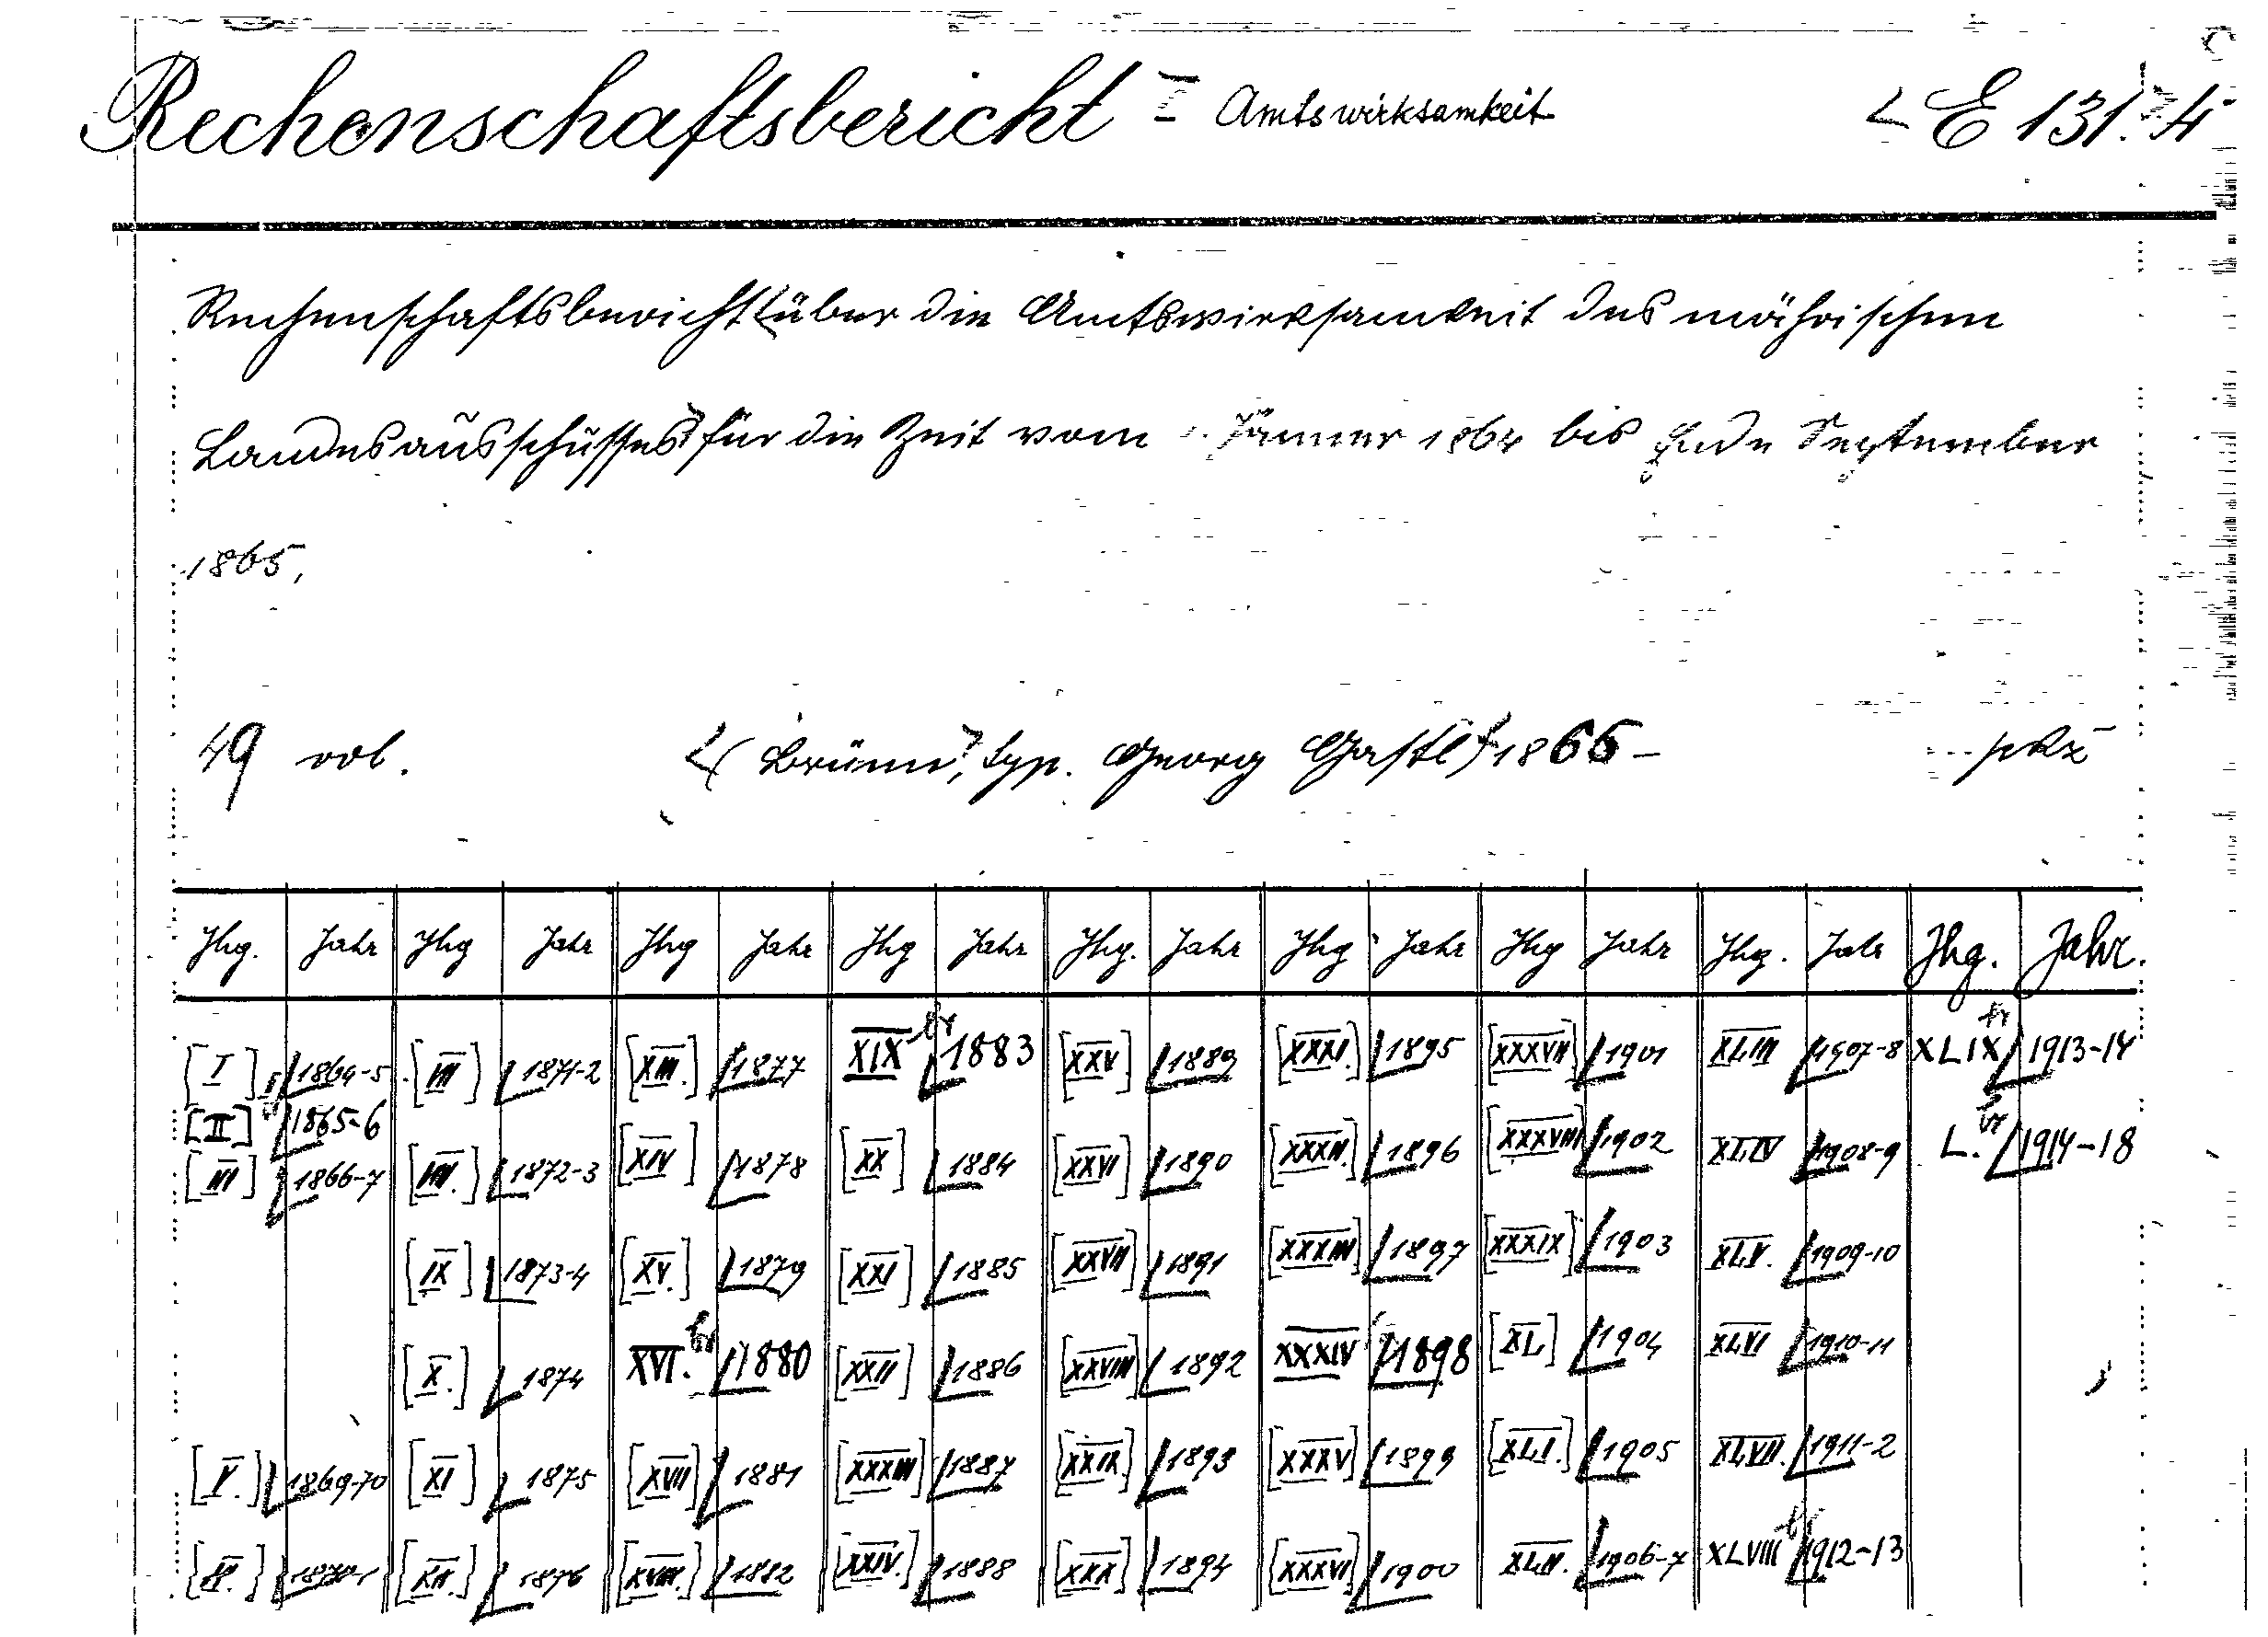 Rechenschaftsbericht I Amtswirksamkeit E 131.4
Rechenschaftsbericht über die Amtswirksamkeit des mährischen
Landesausschusses für die Zeit vom 1. Jänner 1864 bis Ende September
1865,
49 vol. (Brünn, typ. Georg Gastl) 1866 –
Jhg. Jahr Jhg Jahr Jhg Jahr Jhg Jahr Jhg. Jahr Jhg Jahr Jhg Jahr Jhg. Jahr Jhg. Jahr.
[I] 1864-5 [VII] 1871-2 [XIII.] 1877 XIX 1883 [XXV.] 1889 [XXXI.] 1895 [XXXVII] 1901 XLIII 1907-8 XLIX 1913-14
[II] 1865-6
[III] 1866-7 [VIII.] 1872-3 [XIV] 1878 [XX] 1884 [XXVI] 1890 [XXXII.] 1896 [XXXVIII] 1902 XLIV 1908-9 L. 1914-18
[IX] 1873-4 [XV.] 1879 [XXI] 1885 [XXVII] 1891 [XXXIII] 1897 [XXXIX] 1903 XLV. 1909-10
[X.] 1874 XVI. 1880 [XXII] 1886 [XXVIII] 1892 XXXIV 1898 [XL] 1904 XLVI 1910-11
[V.] 1869-70 [XI] 1875 [XVII] 1881 [XXXIII] 1887 [XXIX.] 1893 [XXXV] 1899 [XLI.] 1905 XLVII. 1911-2
[VI.] 1870-1 [XII.] 1876 [XVIII.] 1882 [XXIV.] 1888 [XXX] 1894 [XXXVI] 1900 XLII. 1906-7 XLVIII 1912-13